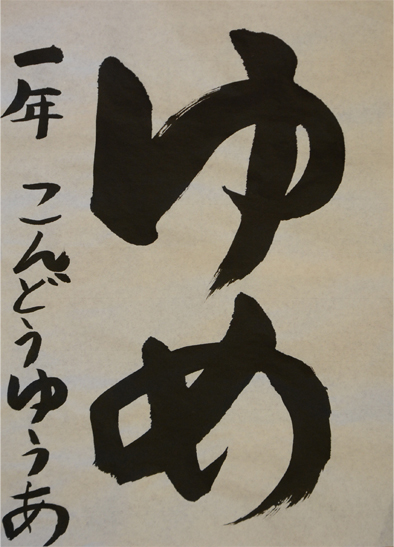 ゆめ
一年 こんどうゆうあ